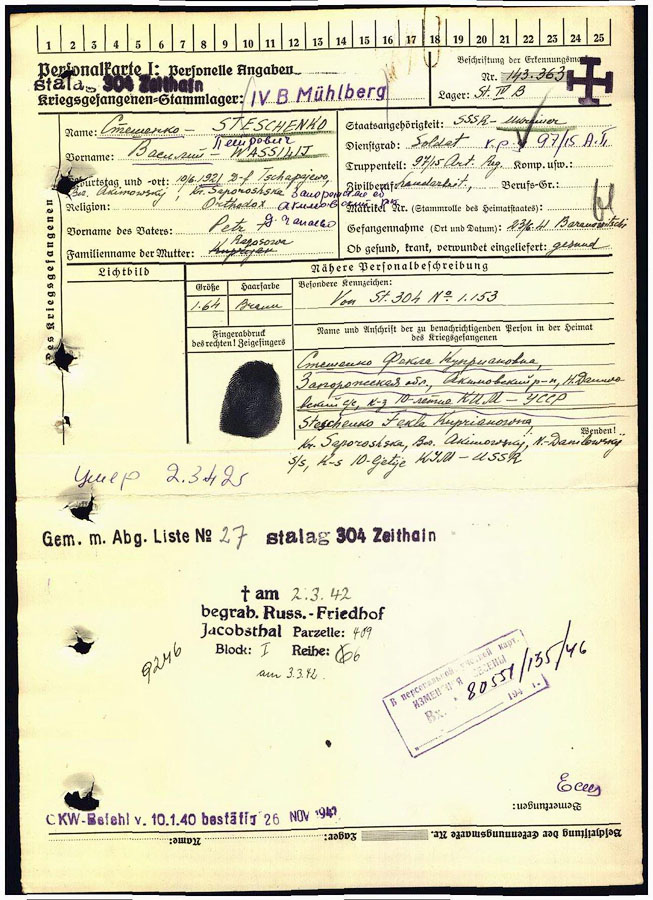 1 2 3 4 5 6 7 8 9 10 11 12 13 14 15 16 17 18 19 20 21 22 23 24 25
Personalkarte I: Personelle Angaben
stalag 304 Zeithain
Kriegsgefangenen-Stammlager: IV B Mühlberg
Beschriftung der Erkennungsmarke
Nr. 143.363
Lager: St. IV B
Des Kriegsgefangenen
Name: Стешенко – STESCHENKO
Петрович
Vorname: Василий – WASSILIJ
Geburtstag und -ort: 10/6.1921 D-f Tschapajewo,
Bw. Akimowskj, Kr. Saporoshska Запорожская об
Religion: Orthodox Акимовский рн
Д. Чапаево
Vorname des Vaters: Petr
Ragosowa
Familienname der Mutter:
Staatsangehörigkeit: SSSR – Ukrainer
Dienstgrad: Soldat 97/15 A.P.
Truppenteil: 97/15 Art. Reg. Komp. usw.:
Zivilberuf: Landarbeit., Berufs-Gr.:
Matrikel Nr. (Stammrolle des Heimatstaates):
Gefangennahme (Ort und Datum): 23/6.41 Baranowitschi
Ob gesund, krank, verwundet eingeliefert: gesund
Lichtbild
Nähere Personalbeschreibung
Größe Haarfarbe Besondere Kennzeichen:
1.64 Braun Von St. 304 Nº 1.153
Fingerabdruck
des rechten! Zeigefingers
Name und Anschrift der zu benachrichtigenden Person in der Heimat
des Kriegsgefangenen
Стешенко Фекла Куприановна,
Запорожская обл., Акимовский р-н, Н. Данило
вский с/с, к-з 10-летие КИМ – УССР
Steschenko Fekla Kuprianowna,
Wenden!
Kr. Saporoshska, Bw. Akimowskj, N-Danilowskj
S/s, K-s 10-Ljetije KIM – USSR
умер 2.3.42г
Gem. m. Abg. Liste № 27 stalag 304 Zeithain
† am 2.3.42
begrab. Russ.-Friedhof
Jacobsthal Parzelle: 409
Block: I Reihe: 6
am 3.3.42.
9246
В персональной учетной карт.
ИЗМЕНЕНИЯ ВНЕСЕНЫ
Вх. 80551/135/46
194 г.
Bemerkungen:
OKW-Befehl v. 10.1.40 bestätig 26 NOV 1941
Beschriftung der Erkennungsmarke Nr.
Lager:
Name: